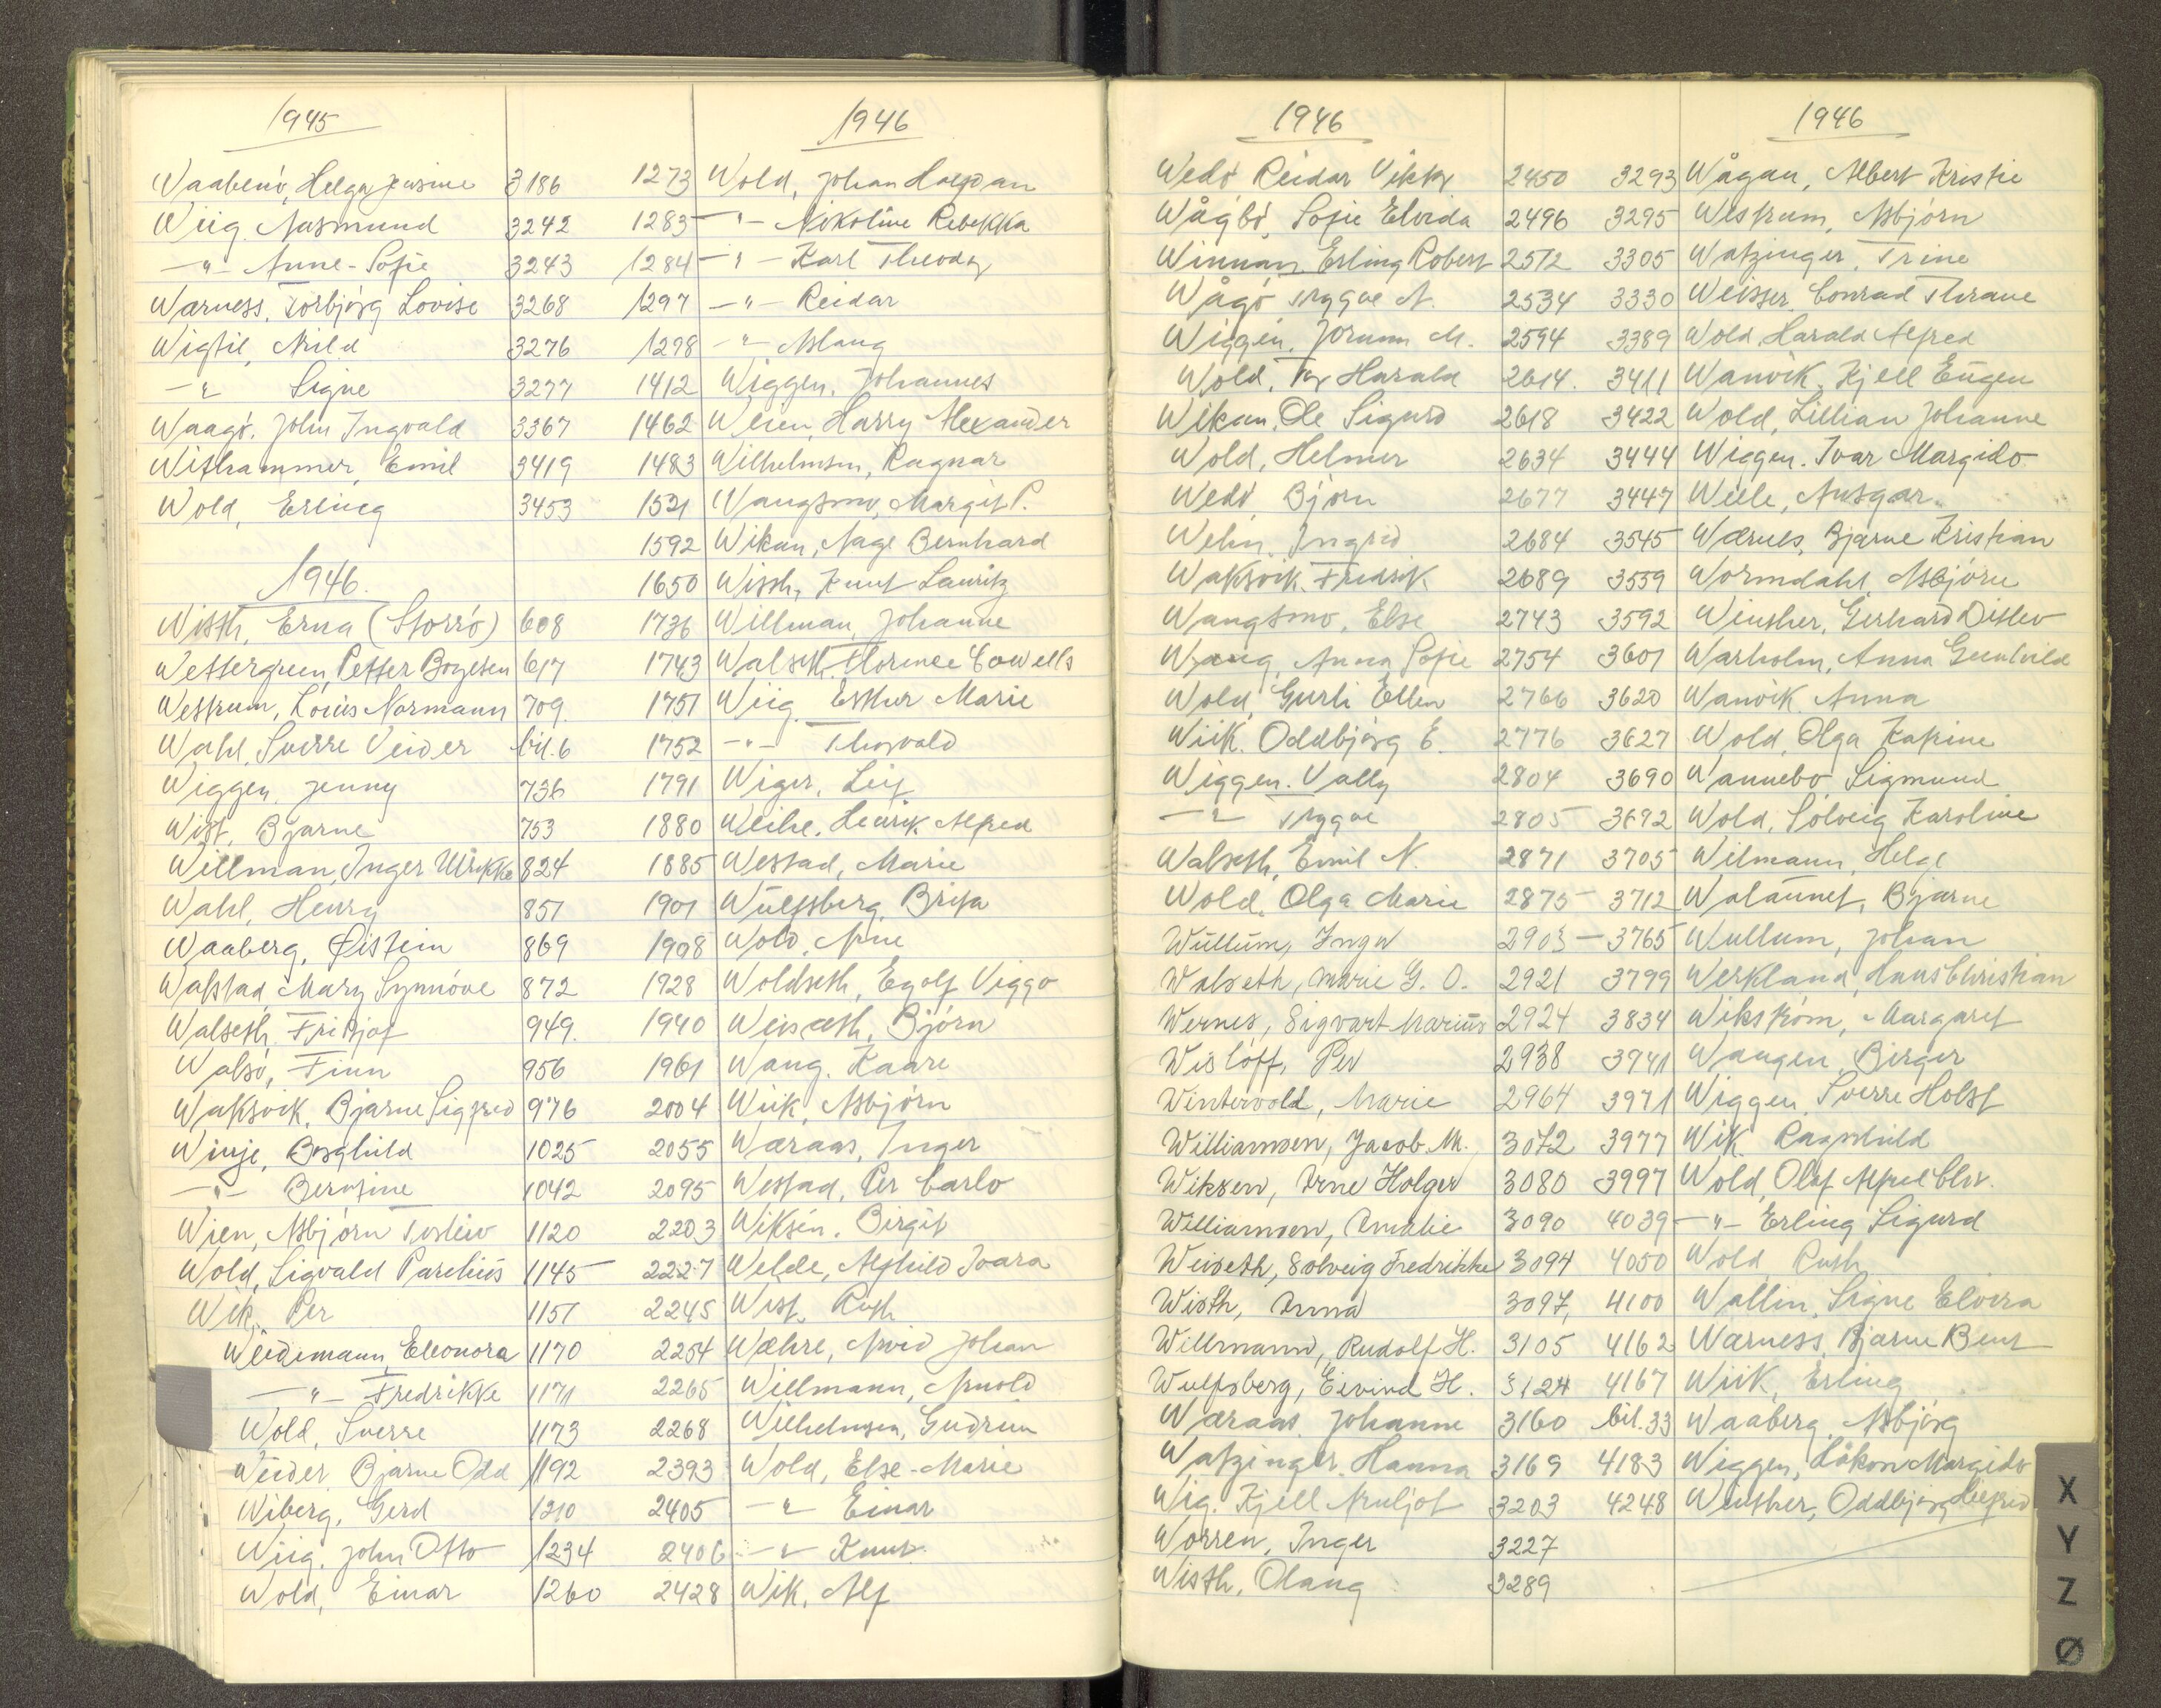 1945
Waabenø, Helga Jensine 3186
Wiig Aasmund 3242
-"- Anne-Sofie 3243
Wærness, Torbjørg Lovise 3268
Wigtil, Arild 3276
-"- Signe 3277
Waagø, John Ingvald 3367
Withammer, Emil 3419
Wold, Erling 3453
1946.
Wisth, Erna (Storrø) 608
Wettergreen, Petter Boyesen 617
Westrum, Louis Normann 709.
Wahl, Sverre Veider bil. 6
Wiggen, Jenny 736
Wist, Bjarne 753
Willman, Inger Ulrikke 824
Wahl, Henry 851
Waaberg, Øistein 869
Wafstad, Mary Synnøve 872
Walseth, Fridtjof 949.
Walsø, Finn 956
Waksvik, Bjarne Sigfred 976
Winje, Borghild 1025
-"- Berntine 1042
Wien, Asbjørn Torleiv 1120
Wold, Sigvald Parelius 1145
Wik, Per 1151
Weidemann, Eleonora 1170
-"- Fredrikke 1171
Wold, Sverre 1173
Weider, Bjarne Odd 1192
Wiberg, Gerd 1210
Wiig, John Otto 1234
Wold, Einar 1260
1946
1273 Wold, Johan Halfdan
1283 -"- Nikoline Rebekka
1284 -"- Karl Theodor
1297 -"- Reidar
1298 -"- Aslaug
1412 Wiggen, Johannes
1462 Weien, Harry Alexander
1483 Wilhelmsen, Ragnar
1521 Wangsmo, Margit P.
1592 Wikan, Aage Bernhard
1650 Wisth, Knut Lauritz
1736 Willman, Johanne
1743 Walseth, Florence Cowells
1751 Wiig, Esther Marie
1752 -"- Thorvald
1791 Wiger, Leif
1880 Weihe, Henrik Alfred
1885 Westad, Marie
1901 Wulfsberg, Brita
1908 Wold, Arne
1928 Woldseth, Egolf Viggo
1940 Weisæth, Bjørn
1961 Wang, Kaare
2004 Wiik, Asbjørn
2055 Wæraas, Inger
2095 Westad, Per Carlo
2203 Wiksén, Birgit
2227 Welde, Alfhild Ivara
2245 Wist, Ruth
2254 Wæhre, Arvid Johan
2265 Willmann, Arnold
2268 Wilhelmsen, Gudrun
2393 Wold, Else-Marie
2405 -"- Einar
2406 -"- Knut
2428 Wik, Alf
1946
Wedø Reidar Viktor 2450
Wågbø, Sofie Elvida 2496
Winnan, Erling Robert 2512
Wågø, Trygve N. 2534
Wiggen, Jorunn M. 2594
Wold, Tor Harald 2614.
Wikan, Ole Sigurd 2618
Wold, Helmer 2634
Wedø, Bjørn 2677
Wehn, Ingrid 2684
Waksvik, Fredrik 2689
Wangsmo, Else 2743
Wang, Anna Sofie 2754
Wold, Gurli Ellen 2766
Wiik, Oddbjørg E. 2776
Wiggen, Vally 2804
-"- Trygve 2805
Walseth, Emil N. 2871
Wold, Olga Marie 2875
Wullum, Inga 2903
Walseth, Marie G. O. 2921
Wernes, Sigvart Marius 2924
Wisløff, Per 2938
Wintervold, Marie 2964
Williamsen, Jacob M. 3072
Wiksen, Arne Holger 3080
Williamsen, Amalie 3090
Weiseth, Solveig Fredrikke 3094
Wisth, Anna 3097,
Willmann, Rudolf H. 3105
Wulfsberg, Eivind H. 3124
Wæraas, Johanne 3160
Watzinger, Hanna 3169
Wig, Kjell Arnljot 3203
Worren, Inger 3227
Wisth, Olaug 3289
1946
3293 Wågan, Albert Kristie
3295 Westrum, Asbjørn
3305 Watzinger, Trine
3330 Weisser, Conrad Thrane
3389 Wold, Harald Alfred
3411 Wanvik, Kjell Eugen
3422 Wold, Lillian Johanne
3444 Wiggen, Ivar Margido
3447 Wiele, Ansgar
3545 Wærnes, Bjarne Kristian
3559 Wormdahl, Asbjørn
3592 Winther, Gerhard Ditlev
3601 Warholm, Anna Gunhild
3620 Wanvik, Anna
3627 Wold, Olga Katrine
3690 Wannebo, Sigmund
3692 Wold, Solveig Karoline
3705 Wilmann, Helge
3712 Walaunet, Bjarne
3765 Wullum, Johan
3799 Werkland, Hans Christian
3834 Wikstrøm, Margaret
3941 Waugen, Birger
3971 Wiggen, Sverre Holst
3977 Wik, Ragnhild
3997 Wold, Olaf Alfred Chr.
4039 -"- Erling Sigurd
4050 Wold, Ruth
4100 Wallin, Signe Elvira
4162 Wærness, Bjarne Bent
4167 Wiik, Erling
bil. 33 Waaberg, Asbjørg
4183 Wiggen, Håkon Margido
4248 Winther, Oddbjørg Helfrid
X
Y
Z
Ø